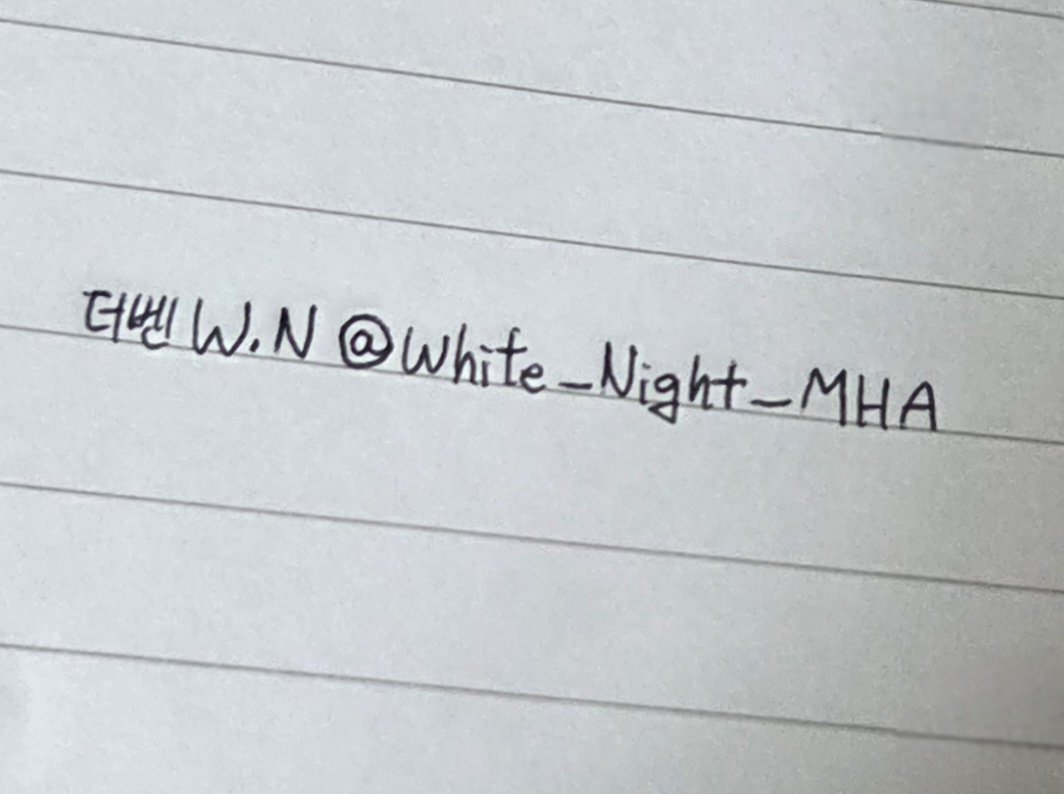 더벤 W.N @White_Night_MHA